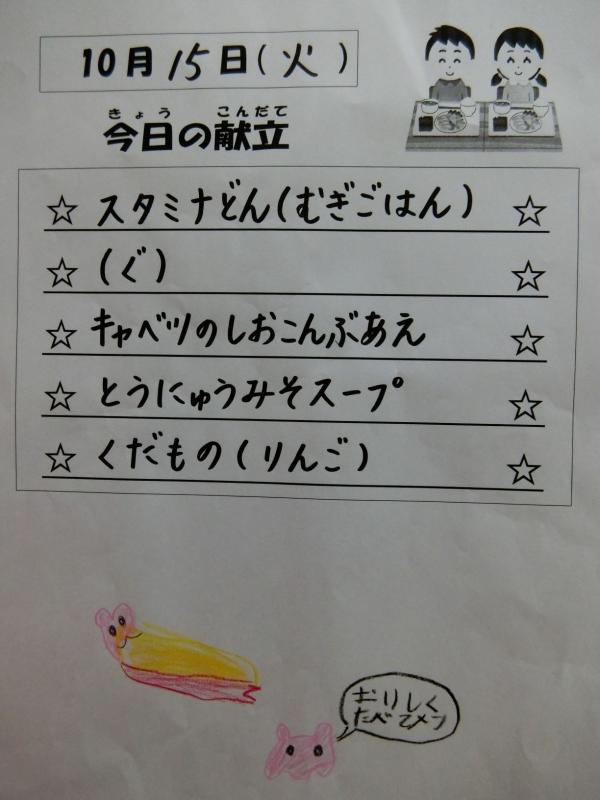 10月15日(火)
きょう こんだて
今日の献立
☆ スタミナどん(むぎごはん) ☆
☆ (ぐ) ☆
☆ キャベツのしおこんぶあえ ☆
☆ とうにゅうみそスープ ☆
☆ くだもの(りんご) ☆
おりしく
たべてメン